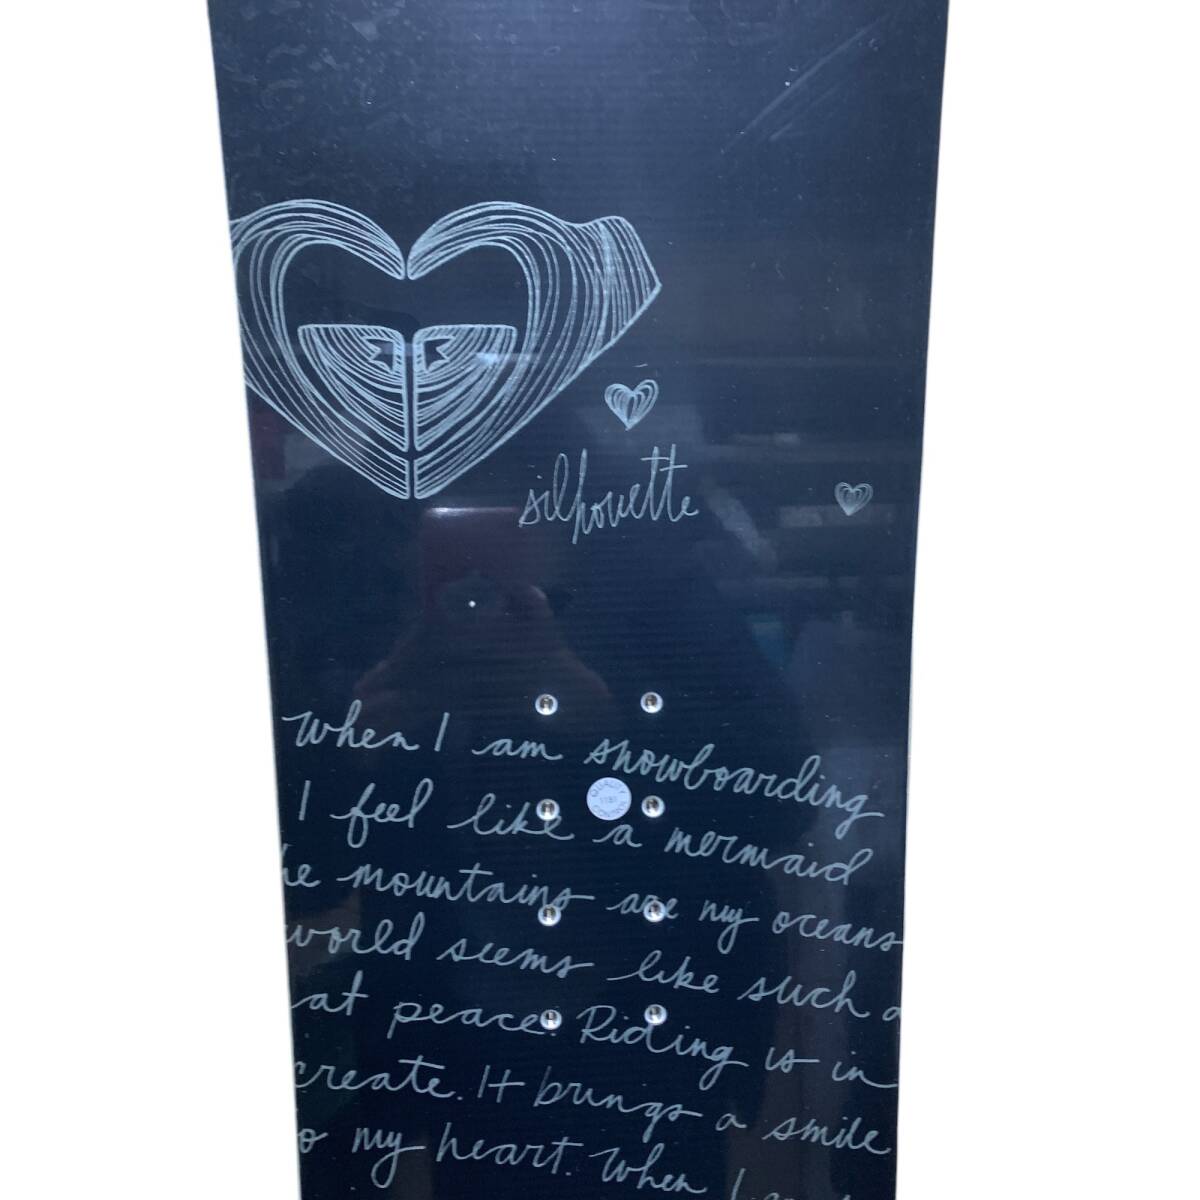 silhouette
When I am snowboarding
QUALITY
CONTROL
I feel like a mermaid
he mountains are my oceans
world seems like such a
at peace. Riding is in
create. It brings a smile
o my heart. When I